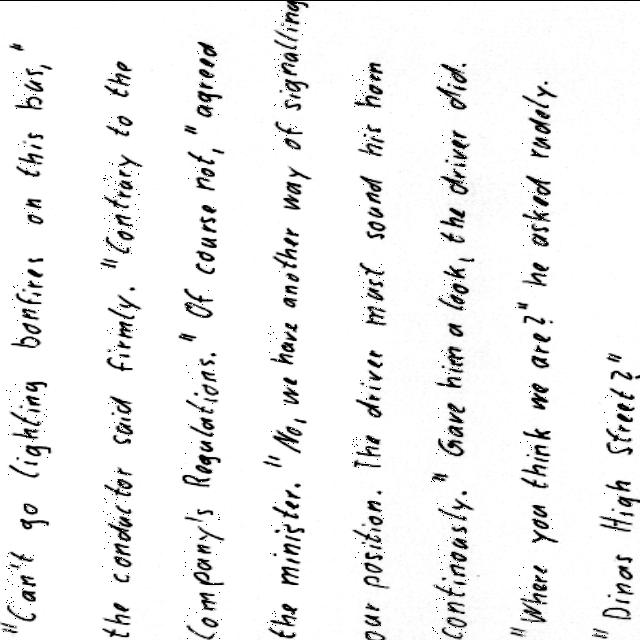 "Can't go lighting bonfires on this bus,"
the conductor said firmly. "Contrary to the
Company's Regulations." "Of course not," agreed
the minister. "No, we have another way of signalling
our position. The driver must sound his horn
continously." Gave him a look, the driver did.
"Where you think we are?" he asked rudely.
"Dinas High Street?"